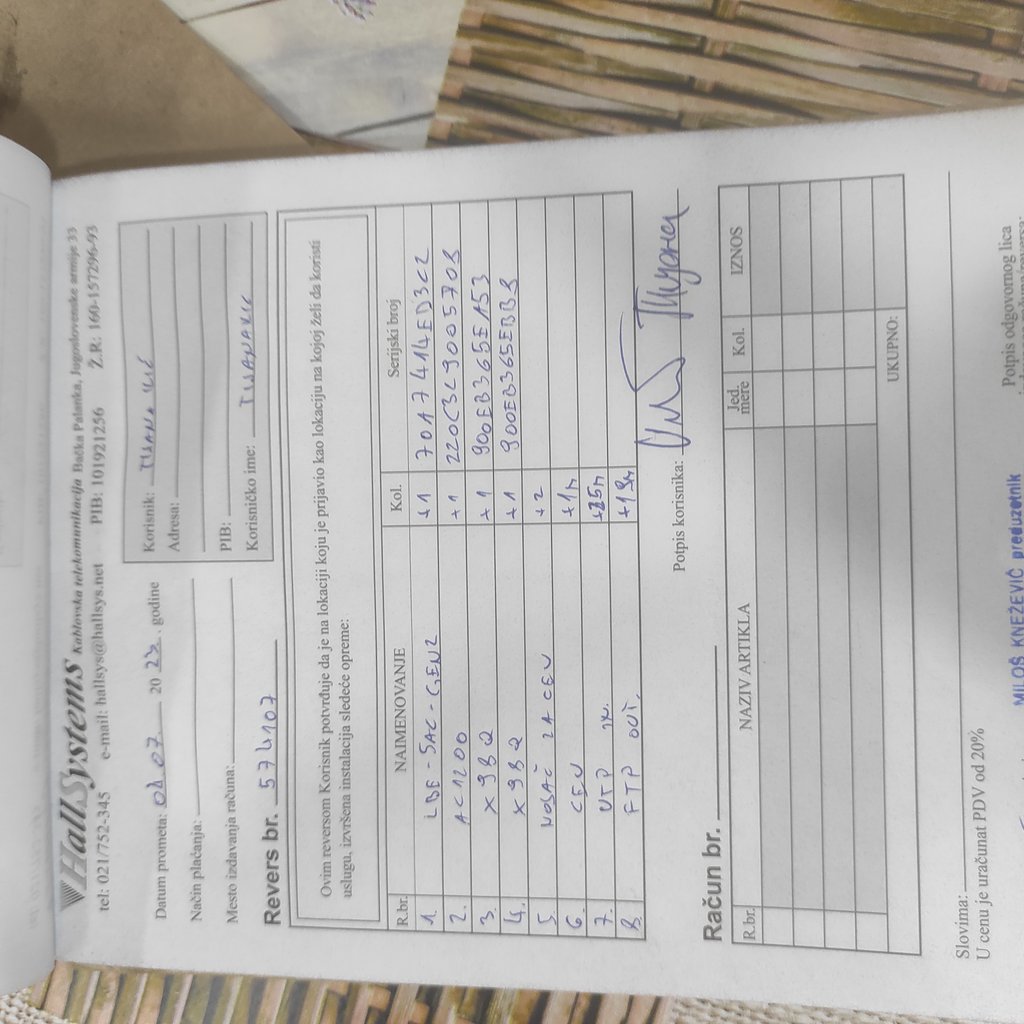 HallSystems Kablovska telekomunikacija Bačka Palanka, Jugoslovenske armije 33
tel: 021/752-345 e-mail: hallsys@hallsys.net PIB: 101921256 Ž.R: 160-157296-93
Datum prometa: 04 07 20 23. godine
Način plaćanja:
Mesto izdavanja računa:
Korisnik: TIJANA ILIĆ
Adresa:
PIB:
Korisničko ime:
Revers br. 574107
Ovim reversom Korisnik potvrđuje da je na lokaciji koju je prijavio kao lokaciju na kojoj želi da koristi
uslugu, izvršena instalacija sledeće opreme:
R.br. NAIMENOVANJE Kol. Serijski broj
1. LBE-5AC-GEN2 +1 70A7414ED3C2
2. AC1200 +1 220C3L9005708
3. X9BQ +1 900EB365E153
4. X9BQ +1 900EB365EBB8
5. NOSAČ ZA CEV +2
6. CEV +1m
7. UTP
8. FTP OUT. +19m
Potpis korisnika:
Račun br.
R.br. NAZIV ARTIKLA Jed. mere Kol. IZNOS
UKUPNO:
Slovima:
U cenu je uračunat PDV od 20%
Potpis odgovornog lica
MILOŠ KNEŽEVIĆ preduzetnik